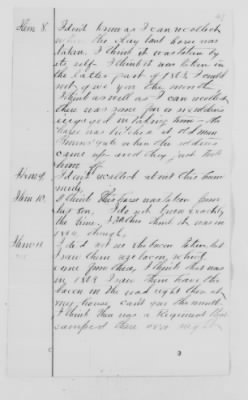 Item 8. I don't know as I can recollect
when the clay bank horse was
taken. I think it was taken by
its self. I think it was taken in
the latter part of 1863. I could
not give you the month.
I think as well as I can recollect
there was some four or soldiers
engaged in taking him — the
horse was hitched at old man
gate when the soldiers
came up and they just took
him off.
Item 9. I don't recollect about this
mule.
Item 10. I think this horse was taken from
I do not know exactly
the time, I rather think it was in
1864, though.
Item 11 I did not see the bacon taken but
I saw them use bacon, which
came from there, I think this was
in 1863 I saw them have the
bacon in the road right there at
my house, can't say the month
I think there was a Regiment that
camped there over night